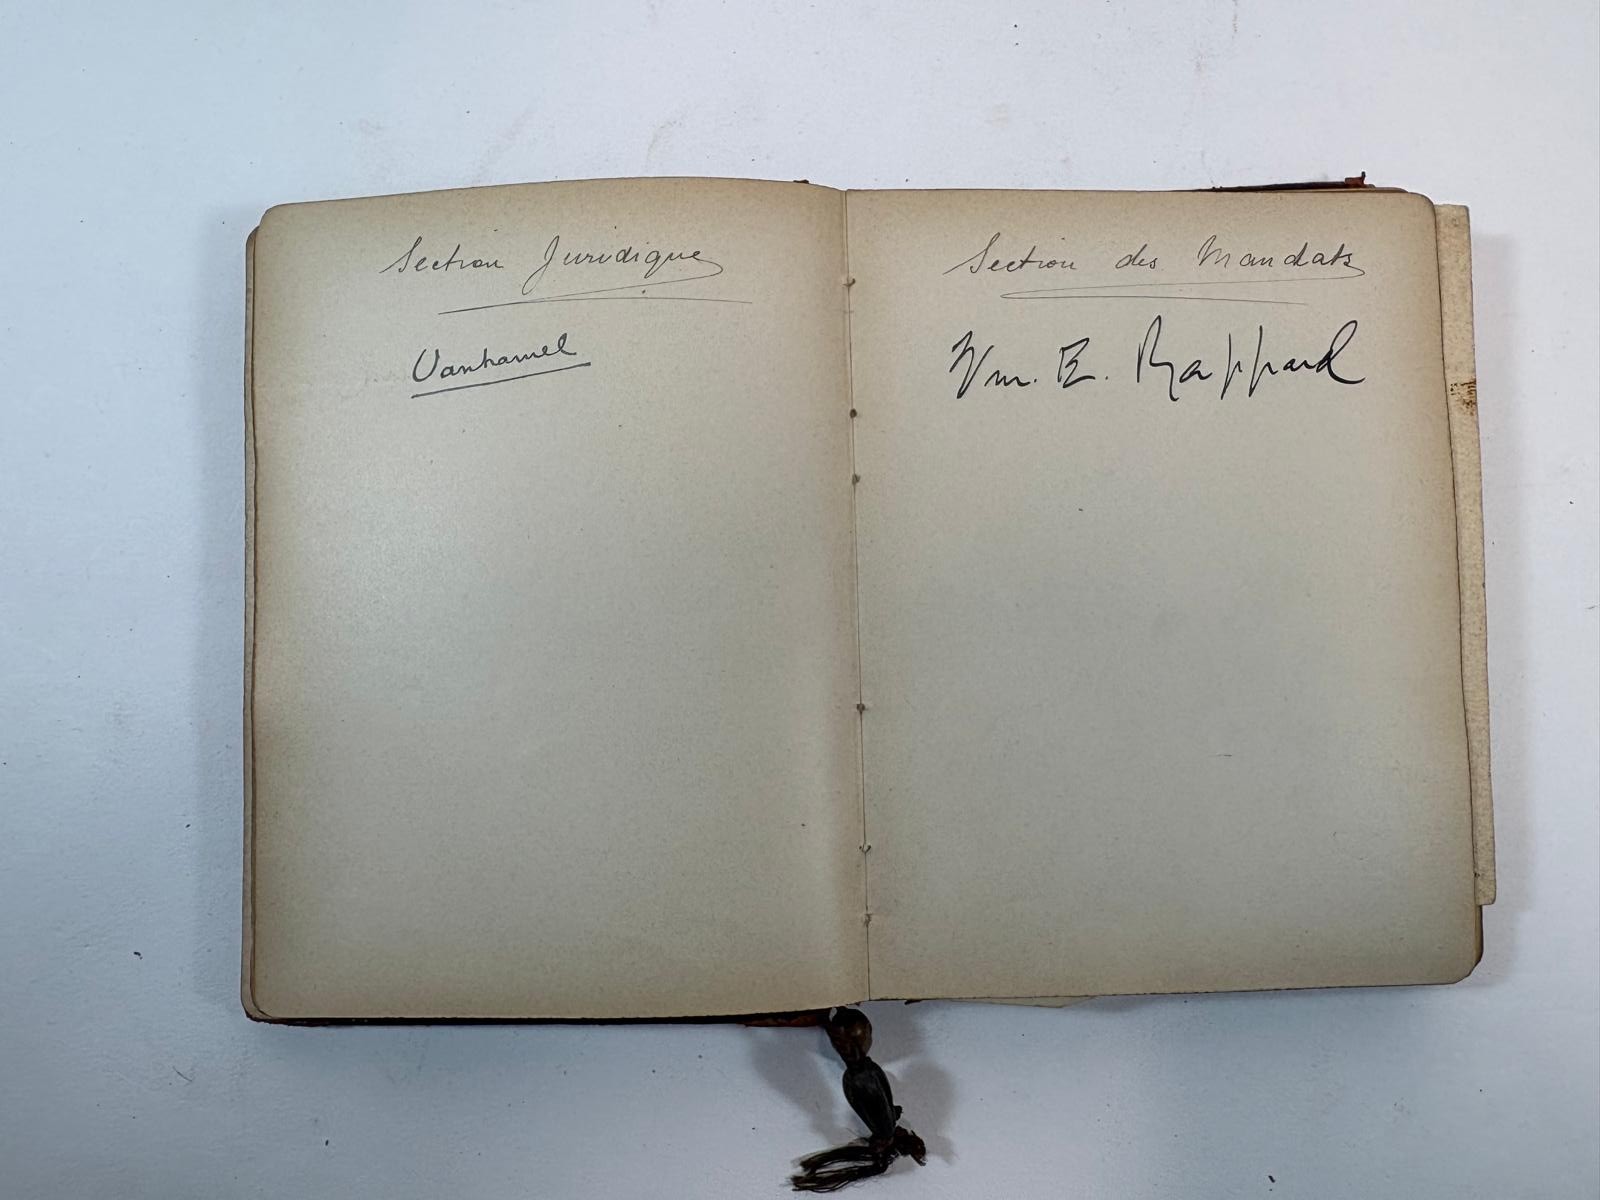 Section Juridique
Vanhamel
Section des Mandats
Wm. E. Rappard